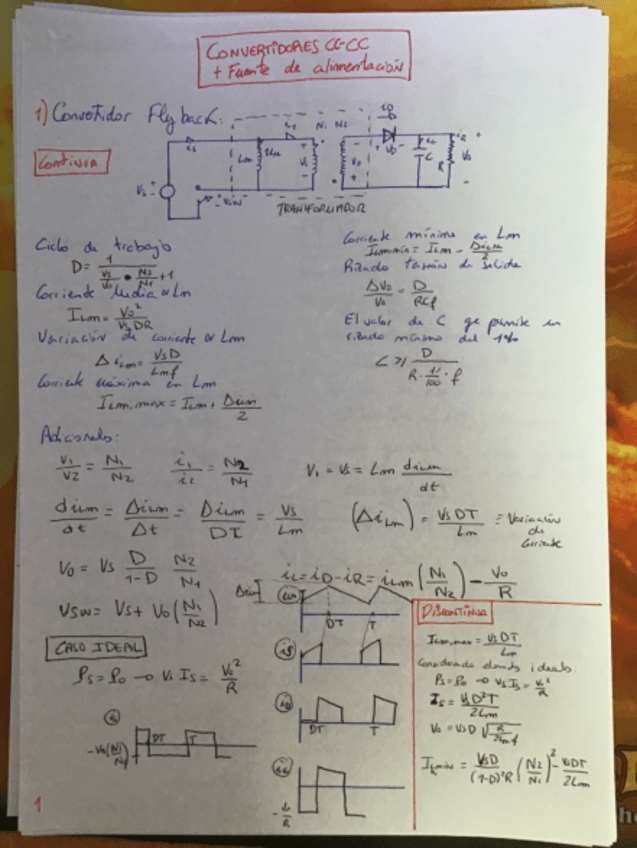 CONVERTIDORES CC-CC
+ Fuente de alimentación
1) Convertidor Flyback:
Continua
is Lm iLm i1 N1 N2 iD iC iR
Vs + - + V1 - - V2 + + VD - C R + Vo -
+ - Vsw
TRANSFORMADOR
Ciclo de trabajo
D = 1 / (Vs/Vo • N2/N1 + 1)
Corriente Media en Lm
ILm = Vo² / Vs DR
Variación de corriente en Lm
ΔiLm = Vs D / Lm f
Corriente máxima en Lm
ILm,max = ILm + ΔiLm / 2
Corriente mínima en Lm
ILm,min = ILm - ΔiLm / 2
Rizado tensión de salida
ΔVo / Vo = D / RCf
El valor de C que permite un
rizado mínimo del 1%
C ≥ D / (R · 1/100 · f)
Adicionales:
V1/V2 = N1/N2 i1/i2 = N2/N1 V1 = Vs = Lm diLm/dt
diLm/dt = ΔiLm/Δt = ΔiLm/DT = Vs/Lm (ΔiLm) = Vs DT / Lm ≡ Variación de Corriente
Vo = Vs D/(1-D) N2/N1
ic = iD - iR = iLm (N1/N2) - Vo/R
Vsw = Vs + Vo (N1/N2)
CASO IDEAL
Ps = Po → Vs Is = Vo²/R
DT T
-Vo(N1/N2)
ΔiLm iLm
DT T
is
iD
DT T
ic
DISCONTINUA
ILm,max = Vs DT / Lm
Considerando ideales:
Ps = Po → Vs Is = Vo²/R
Is = Vs D²T / 2Lm
Vo = Vs D √(R / 2Lm f)
ILmin = Vs D / (1-D)² R (N2/N1)² - Vs DT / 2Lm
1